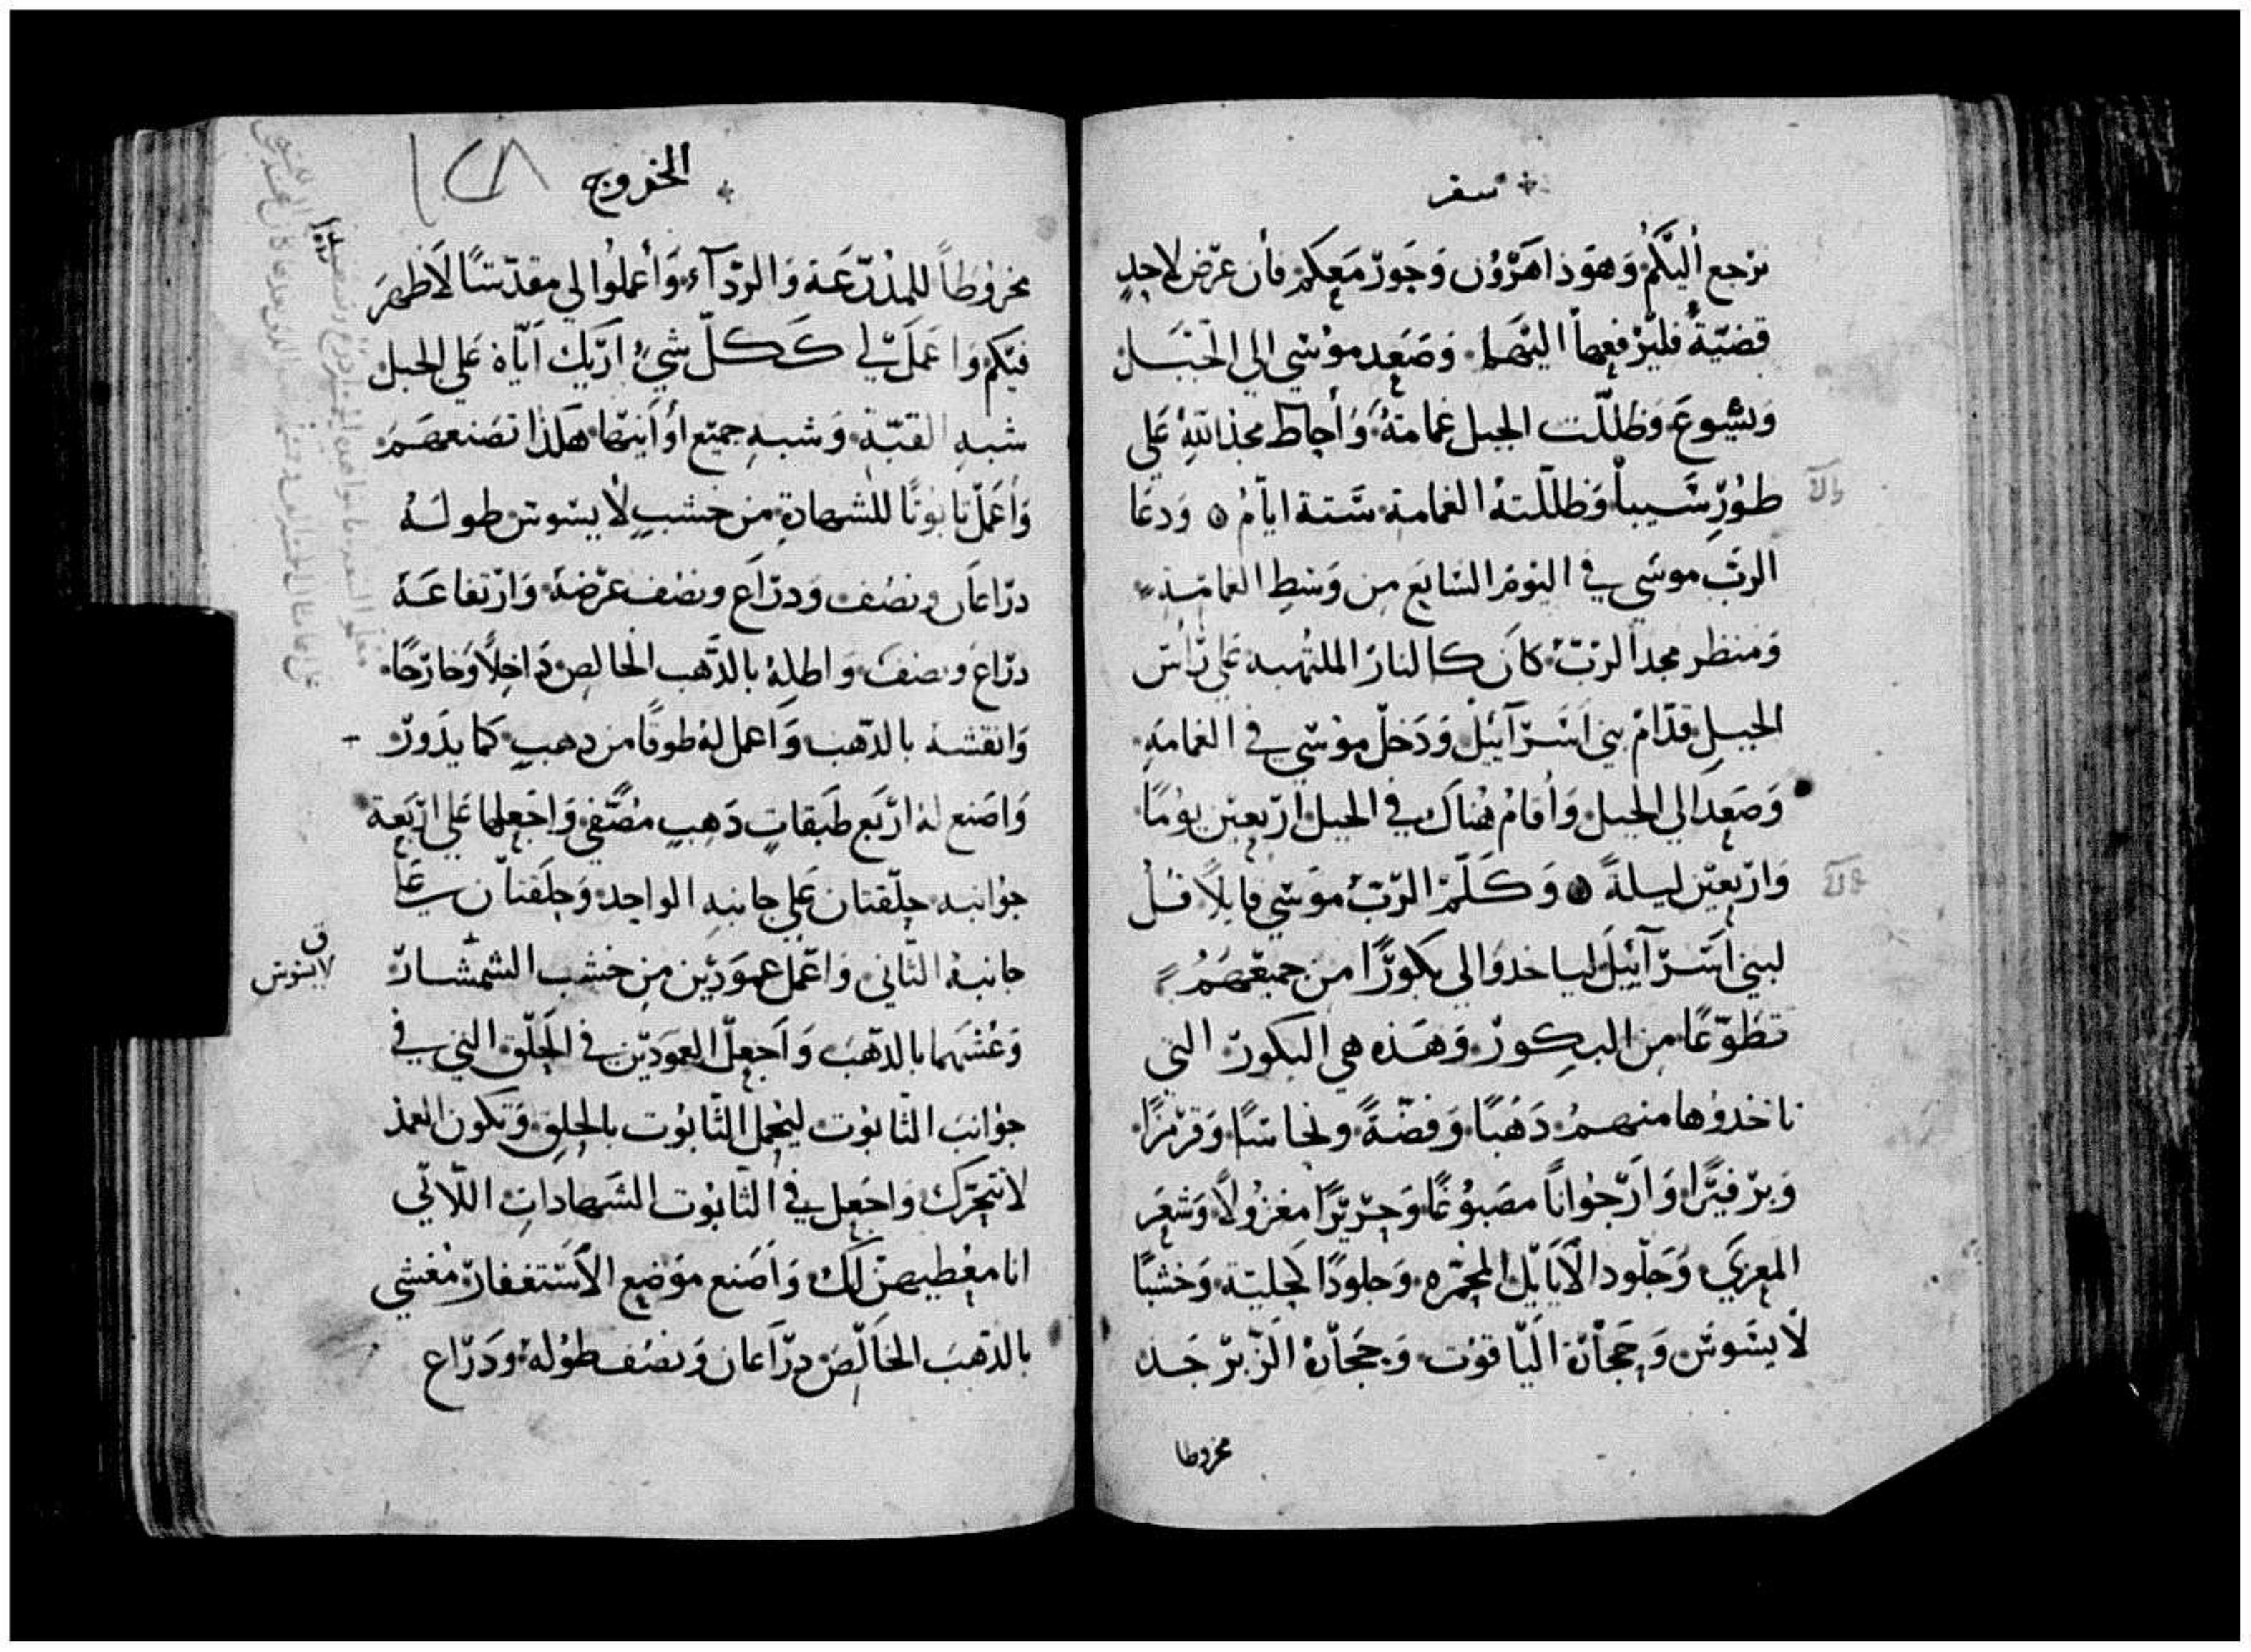 سفر
نرجع أليَّكُم وَهوَذا هَرْوُن وَحَورّ مَعكم فأن عرّض لاحدٍ
قضيّةٌ فليَرْفعها اليّهما وَصَعِد موُسّي الي الجَبَل
وَيشوعَ وَظللّت الجبل غمامَةُ وَأحاط مجدَ اللّهِ عَلي
طوُرِّ سَيبا وَظللّتهُ الغمامة سّتة ايّامُ ۞ وَدعَا
الربّ موسَي في اليَومْ السَابعَ مِن وَسَطِ الغمامَة
وَمنظر مجد الربّ كانَ كالنارّ الملتهبه عَلي رّأس
الجبلِ قدّامْ بني اسَّرّآئيلْ وَدَخلّ موُسّي في الغمامةِ
وَصَعِد الي الجبل وَأقامْ هُناك في الجبل ارّبعيّن يوُمًا
وَارّبعيّن ليلةً ۞ وَكَلّمْ الرّبّ موَسّي قايلاً قلُ
لبني اسَّرّآئيلَ لياخدوَا لي بكورًّا من جميعْهَمُ
تطَوّعًا من البكِورّ وَهَذه هي البكورّ التي
تاخدوُها منهمُ دَهَبًا وَفضّةً ونحاسًا وَقرّمزًا
وَبرّفيرًّا وَارّجوُاناً مصَبوُغًا وَحرّيرًّا مغزوُلاً وَشعَر
المعزيَ وَجَلّود الأَيايّل المحَمّره وَجلودًا كحليّة وَخشبًا
لا يسَّوسّ وَحجَارّة اليّاقوُت وَحجَارّة الزّبرّجَد
مخروطا
الخروج
١٢٨
مخروُطاً للمُدرّعَة وَالرّدآء وَأعملوُا لي مقدّسًا لاَظهرَ
فيّكم وَاعَملّ لي كَكلّ شيءٍ ارّيك ايّاهُ عَلي الجبل
شبهِ القبّة وَشبهِ جميّع أوَانيّها هَكذا تصَنعهَم
وَأَعَملّ تابوُتًا للشهادةِ من خشبٍ لا يسّوسّ طولهُ
درّاعان ونصُف وَدرّاع ونصُف عرّضهُ وَارّتفاعَهُ
درّاع ونصف وَاطلِهُ بالدَّهب الخالصِ دَاخِلاً وَخارّجًا
وَانقشهُ بالدّهب وَاعمل لهُ طوقًا من دهبٍ كما يدَورّ
وَاصَنع لهُ ارّبَع طبَقاتٍ دَهبٍ مصُفّي وَاجَعلها عَلي ارّبَعة
جوُانبه حلّقتان عَلي جانبهِ الواحِد وَحلَقتاّن عَلي
جانبهُ الثّاني وَاعّمل عموَديّن مِن خشب الشّمشارّ
وَغشّهما بالدّهبَ وَاَجعِلّ العموَديّن في الحَلّق التي في
جوُانبَ التّابوُت ليحُمل التّابوُت بالحلق وَتكون العمدْ
لا تتحّرّك وَاجَعل في التّابوُت الشَهاداتِ اللاّتي
انا معُطيهنّ لكْ وَاصَنع موَضع الأستغفارّ مُغشي
بالدّهبَ الخَالّص درّاعان وَنصُف طوُلهُ ودَرّاع
لا يسوس